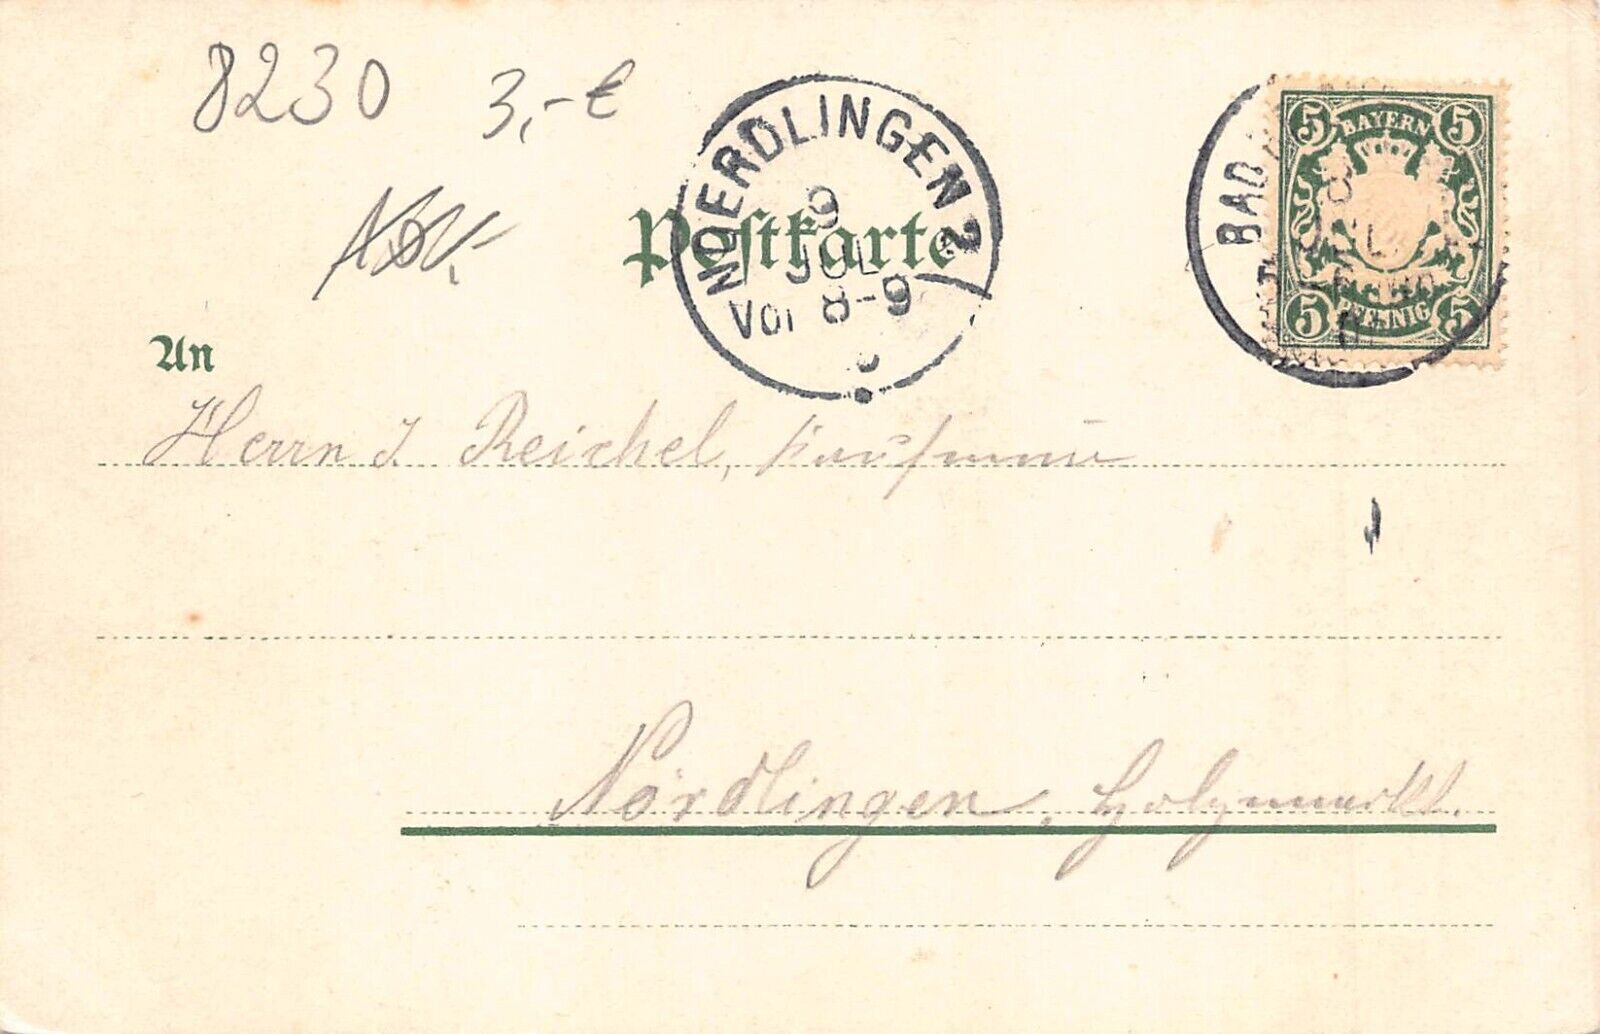 8230 3,-€
Postkarte
NOERDLINGEN 2
9
JUL
Vor 8-9
BAD
BAYERN
5 5
5 PFENNIG 5
An
Herrn J. Reichel, Kaufmann
Nördlingen, Holzmarkt.